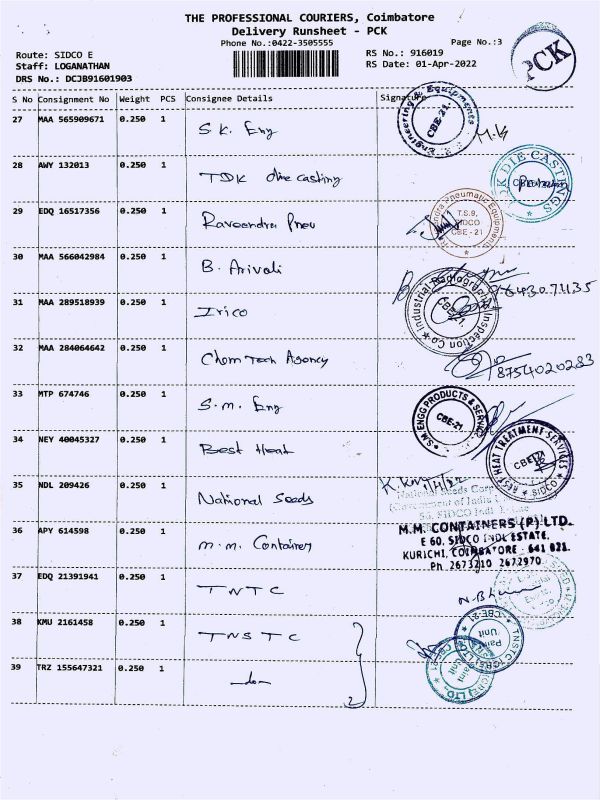 THE PROFESSIONAL COURIERS, Coimbatore
Delivery Runsheet - PCK
Phone No.:0422-3505555
Page No.:3
PCK
Route: SIDCO E
RS No.: 916019
Staff: LOGANATHAN
RS Date: 01-Apr-2022
DRS No.: DCJB91601903
S No Consignment No Weight PCS Consignee Details Signature
27 MAA 565909671 0.250 1 S.K. Eng
Engineering & Equipments
CBE-21.
28 AWY 132013 0.250 1 TDK die casting
TDK DIE CASTINGS
29 EDQ 16517356 0.250 1 Raveendra Pneu
Pneumatic Equipments
T.S.9,
SIDCO
CBE - 21
30 MAA 566042984 0.250 1 B. Arivali
31 MAA 289518939 0.250 1 Irico
Industrial Radiography Inspection Co
CBE-21.
32 MAA 284064642 0.250 1 Chem Tech Agency
8754020283
33 MTP 674746 0.250 1 S.m. Eng
S.M ENGG PRODUCTS & SERVICES
CBE-21.
34 NEY 40045327 0.250 1 Best Heat
BEST HEAT TREATMENT SERVICES
CBE-21
35 NDL 209426 0.250 1 National Seeds
National Seeds Corp
(Government of India
SIDCO Indl. Estate
36 APY 614598 0.250 1 m.m. Container
M.M. CONTAINERS (P) LTD.
E 60, SIDCO INDL ESTATE,
KURICHI, COIMBATORE - 641 021.
Ph 2673210 2672970
37 EDQ 21391941 0.250 1 TNTC
38 KMU 2161458 0.250 1 TNSTC
TNSTC
CBE-21
Paint
Unit
39 TRZ 155647321 0.250 1 do
Paint
Unit
LTD.